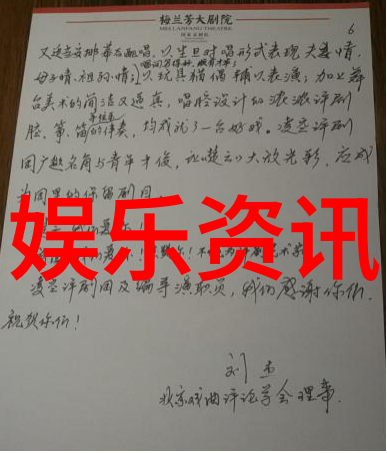 梅兰芳大剧院
MEILANFANG THEATRE
国家京剧院
6
又适当安排幕后翻唱。以生旦对唱形式表现夫妻情、
母子情、祖孙情；以玩具楷偶辅以表演，加上舞
台美术的简洁又逼真，唱腔设计的浓浓评剧
腔，筝、笛的伴奏，均成就了一台好戏。凌空评剧
团广邀名角与青年才俊，让楚云大放光彩，应成
为团里的保留剧目。
娱乐资讯
凌空评剧团及编导演职员，我们感谢你们，
祝贺你们！
刘
北京戏曲评论学会理事